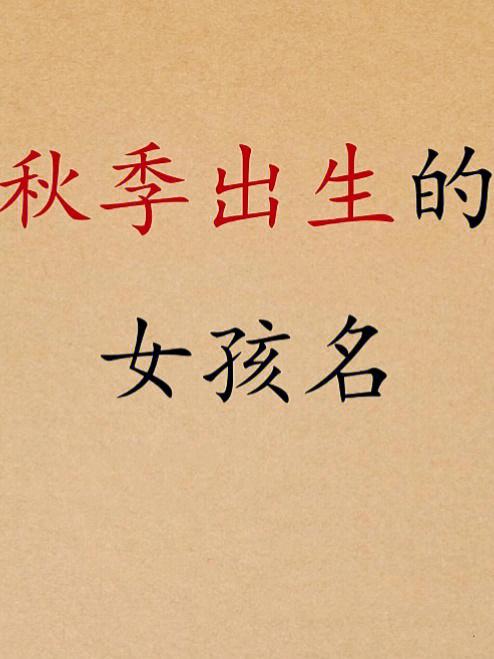 秋季出生的
女孩名